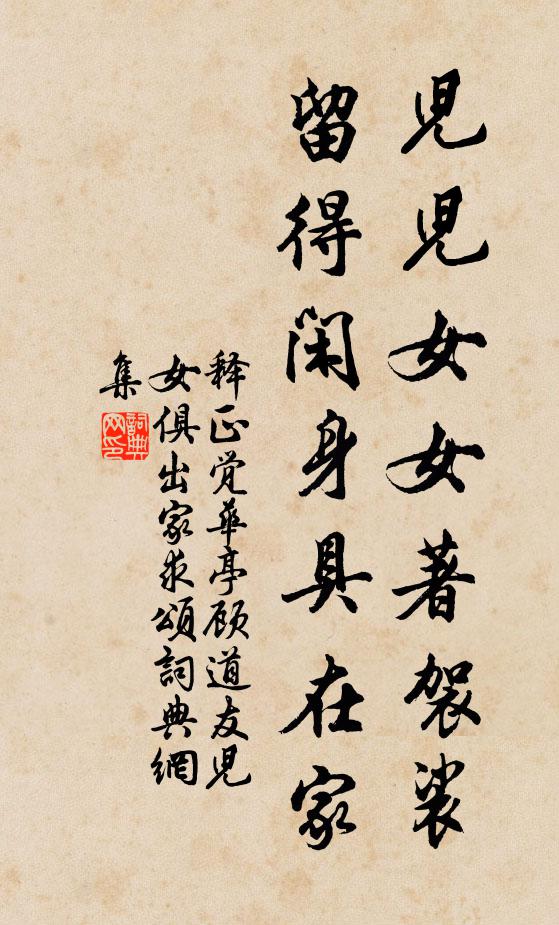 兒兒女女著袈裟
留得閑身具在家
释正觉華亭顾道友兒
女俱出家求頌詞典網
集
詞典
网印